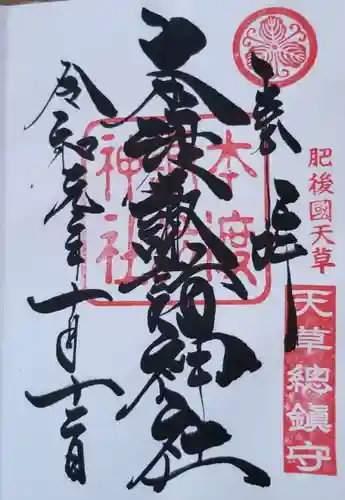 奉拝
肥後國天草
天草總鎮守
本渡諏訪神社
本渡諏訪神社
令和元年十月十二日